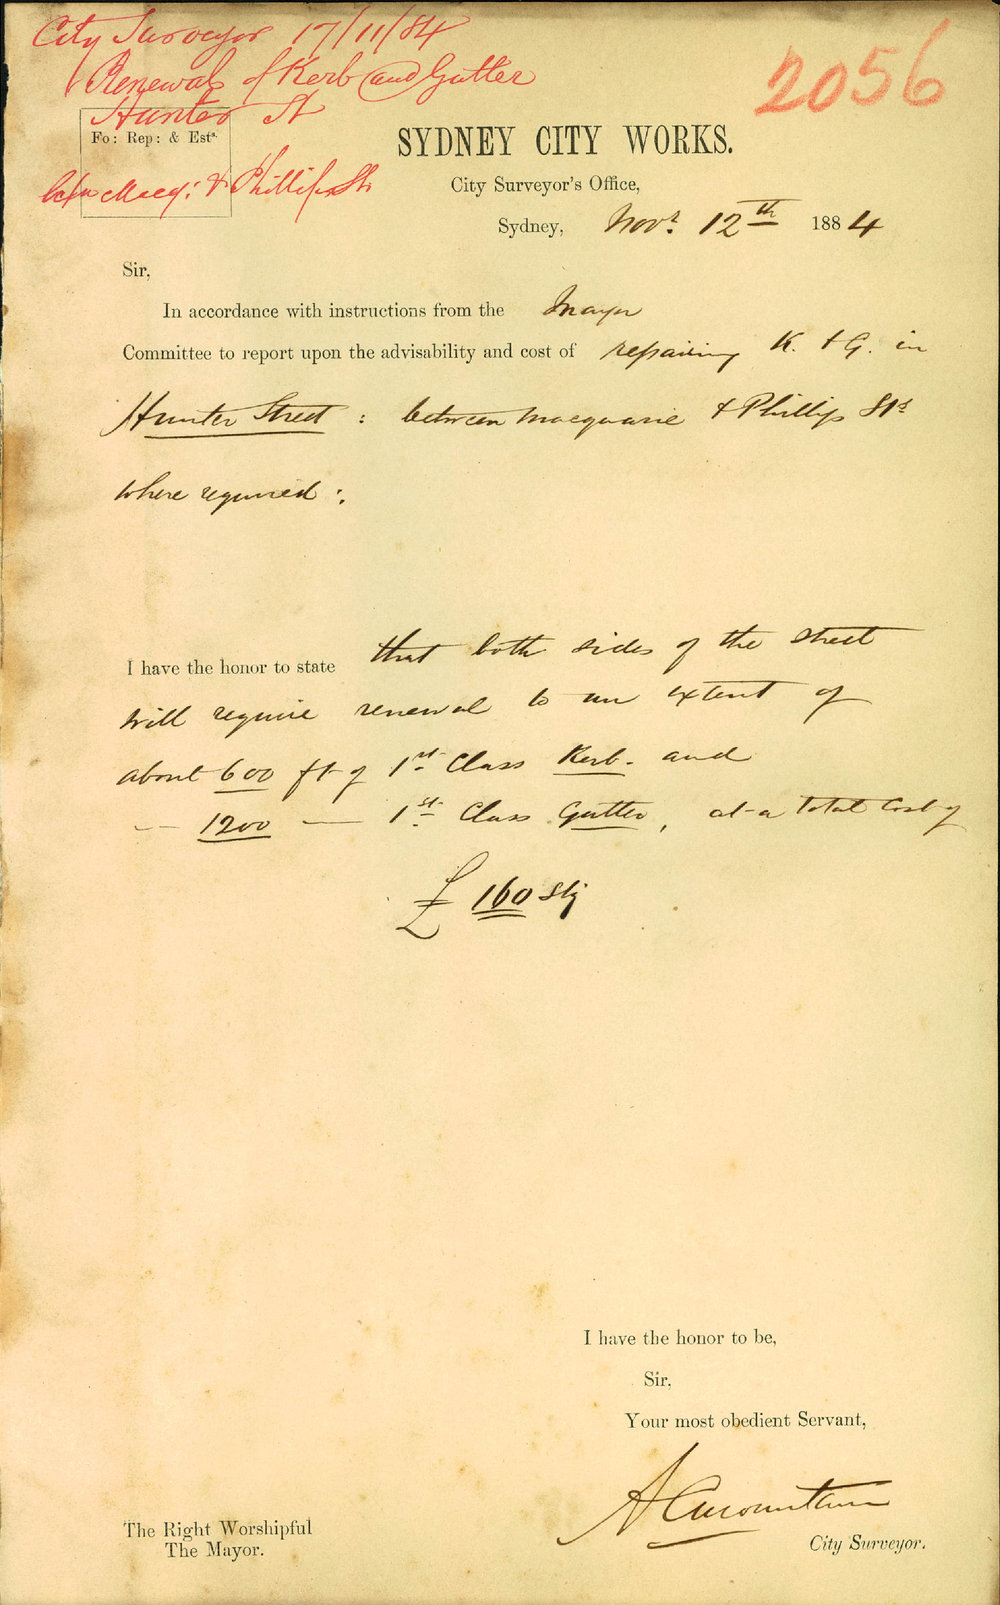 City Surveyor 17/11/84
Renewal of Kerb and Gutter
Hunter St
Fo: Rep: & Ests.
betn Macq: & Phillip Sts
2056
SYDNEY CITY WORKS.
City Surveyor's Office,
Sydney, Novr. 12th 1884
Sir,
In accordance with instructions from the Mayor
Committee to report upon the advisability and cost of repairing K. & G. in
Hunter Street : between Macquarie & Phillip Sts
where required :
I have the honor to state that both sides of the street
will require renewal to an extent of
about 600 ft of 1st Class Kerb. and
— 1200 — 1st Class Gutter, at a total cost of
£ 160 Stg
I have the honor to be,
Sir,
Your most obedient Servant,
City Surveyor.
The Right Worshipful
The Mayor.